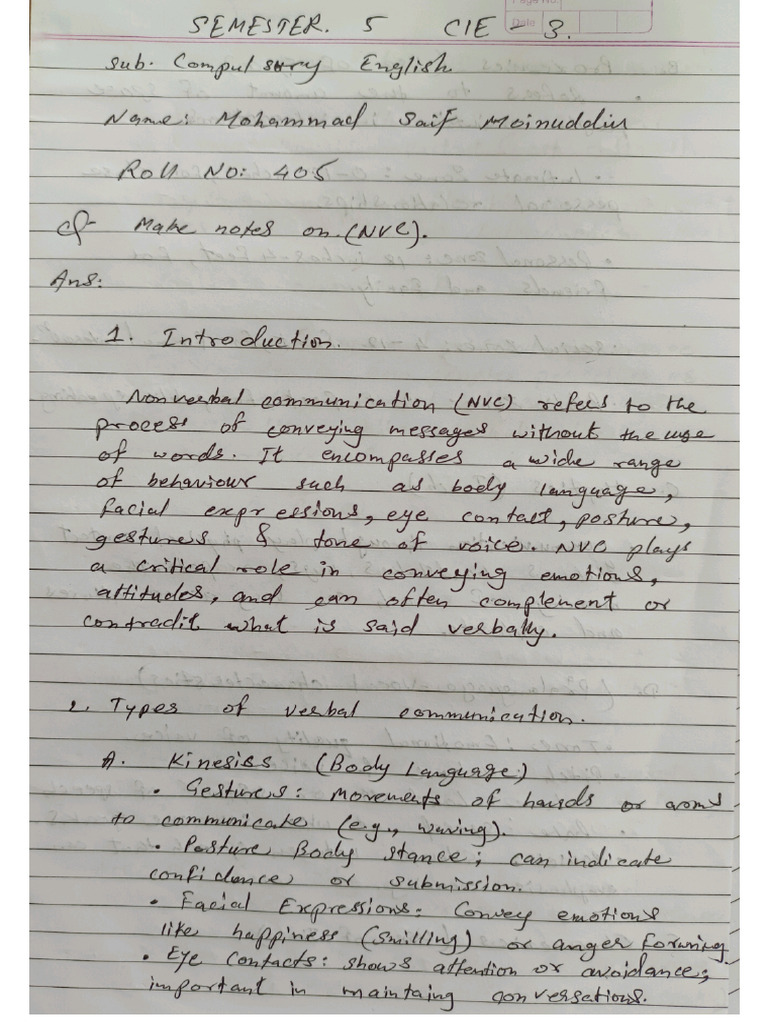 Page No.
Date
SEMESTER. 5 CIE - 3.
Sub. Compulsury English
Name: Mohammad Saif Moinuddin
Roll No: 405
Q- Make notes on (NVC).
Ans:
1. Introduction.
Nonverbal communication (NVC) refers to the
process of conveying messages without the use
of words. It encompasses a wide range
of behaviour such as body language,
facial expressions, eye contact, posture,
gestures & tone of voice. NVC plays
a critical role in conveying emotions,
attitudes, and can often complement or
contradit what is said verbally.
2. Types of verbal communication.
A. Kinesiss (Body Language)
• Gestures: Movements of hands or arms
to communicate (e.g., waving).
• Posture Body stance; can indicate
confidence or submission.
• Facial Expressions: Convey emotions
like happiness (smilling) or anger forwning
• Eye Contacts: shows attention or avoidance;
important in maintaing conversations.